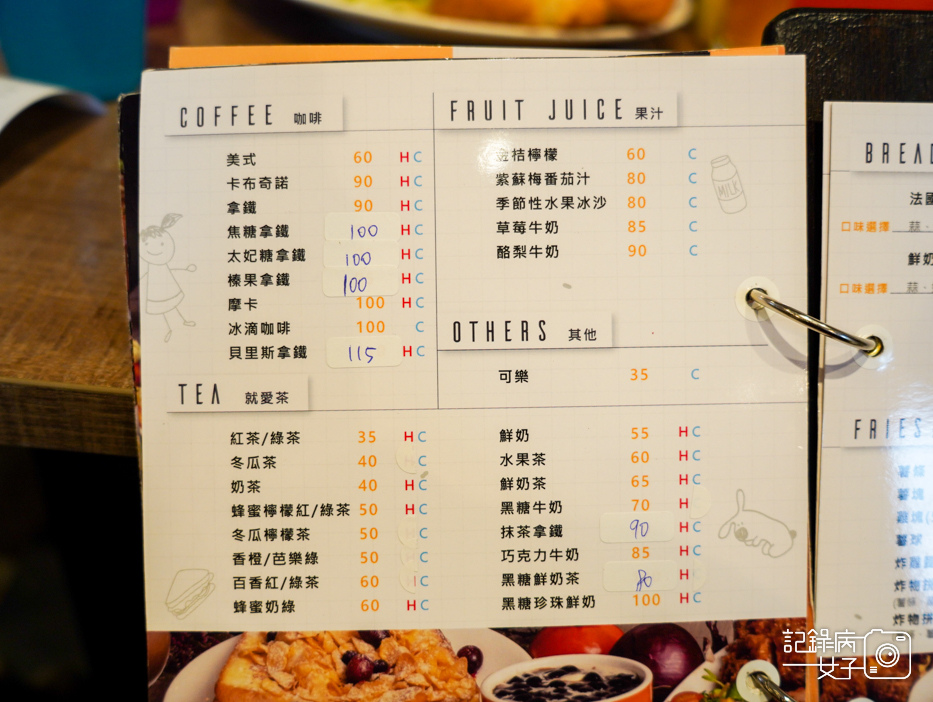 COFFEE 咖啡
美式 60 H C
卡布奇諾 90 H C
拿鐵 90 H C
焦糖拿鐵 100 H C
太妃糖拿鐵 100 H C
榛果拿鐵 100 H C
摩卡 100 H C
冰滴咖啡 100 C
貝里斯拿鐵 115 H C
FRUIT JUICE 果汁
金桔檸檬 60 C
紫蘇梅番茄汁 80 C
季節性水果冰沙 80 C
草莓牛奶 85 C
酪梨牛奶 90 C
MILK
OTHERS 其他
可樂 35 C
TEA 就愛茶
紅茶/綠茶 35 H C
冬瓜茶 40 C
奶茶 40 H C
蜂蜜檸檬紅/綠茶 50 H C
冬瓜檸檬茶 50 C
香橙/芭樂綠 50 C
百香紅/綠茶 60 C
蜂蜜奶綠 60 H C
鮮奶 55 H C
水果茶 60 H C
鮮奶茶 65 H C
黑糖牛奶 70 H
抹茶拿鐵 90 H C
巧克力牛奶 85 H C
黑糖鮮奶茶 80 H
黑糖珍珠鮮奶 100 H C
BREAD
法國
口味選擇 蒜、
鮮奶
口味選擇 蒜、
FRIES
薯條
薯塊
薯球
炸物拼
記錄病
女子